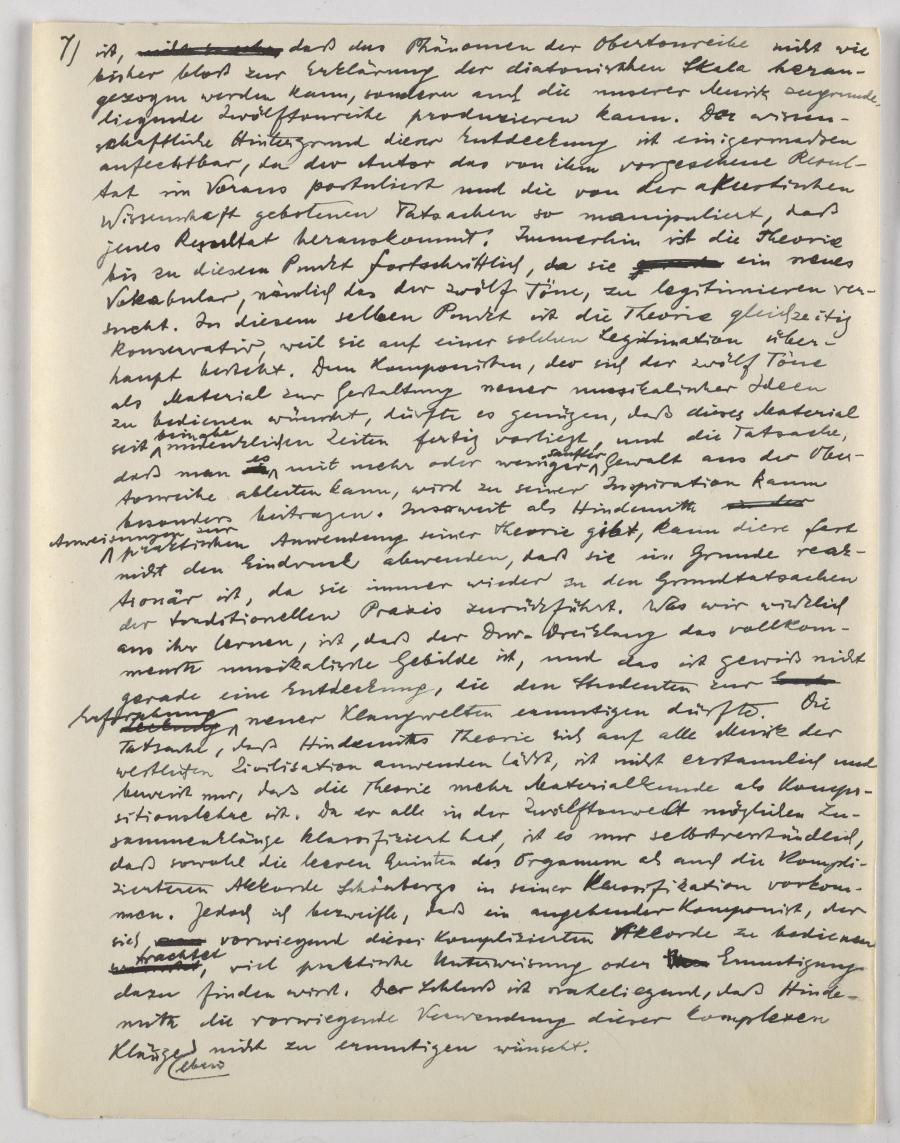 7) ist, daß das Phänomen der Obertonreihe nicht wie
bisher bloß zur Erklärung der diatonischen Skala heran-
gezogen werden kann, sondern auch die unserer Musik zugrunde
liegende Zwölftonreihe produzieren kann. Der wissen-
schaftliche Hintergrund dieser Entdeckung ist einigermaßen
anfechtbar, da der Autor das von ihm vorgesehene Resul-
tat im Voraus postuliert und die von der akustischen
Wissenschaft gebotenen Tatsachen so manipuliert, daß
jenes Resultat herauskommt. Immerhin ist die Theorie
bis zu diesem Punkt fortschrittlich, da sie ein neues
Vokabular, nämlich das der zwölf Töne, zu legitimieren ver-
sucht. In diesem selben Punkt ist die Theorie gleichzeitig
konservativ, weil sie auf einer solchen Legitimation über-
haupt besteht. Dem Komponisten, der sich der zwölf Töne
als Material zur Gestaltung neuer musikalischer Ideen
zu bedienen wünscht, dürfte es genügen, daß dieses Material
seit beinahe undenklichen Zeiten fertig vorliegt, und die Tatsache,
daß man es mit mehr oder weniger sanfter Gewalt aus der Ober-
tonreihe ableiten kann, wird zu seiner Inspiration kaum
besonders beitragen. Insoweit als Hindemith
Anweisungen zur praktischen Anwendung seiner Theorie gibt, kann diese fast
nicht den Eindruck abwenden, daß sie im Grunde reak-
tionär ist, da sie immer wieder zu den Grundtatsachen
der traditionellen Praxis zurückführt. Was wir wirklich
aus ihr lernen, ist, daß der Dur-Dreiklang das vollkom-
menste musikalische Gebilde ist, und das ist gewiß nicht
gerade eine Entdeckung, die den Studenten zur
Erforschung neuer Klangwelten ermutigen dürfte. Die
Tatsache, daß Hindemiths Theorie sich auf alle Musik der
westlichen Zivilisation anwenden läßt, ist nicht erstaunlich und
beweist nur, daß die Theorie mehr Materialkunde als Kompo-
sitionslehre ist. Da er alle in der Zwölftonwelt möglichen Zu-
sammenklänge klassifiziert hat, ist es nur selbstverständlich,
daß sowohl die leeren Quinten des Organum als auch die kompli-
zierteren Akkorde Schönbergs in seiner Klassifikation vorkom-
men. Jedoch ich bezweifle, daß ein angehender Komponist, der
sich vorwiegend dieser komplizierten Akkorde zu bedienen
trachtet, viel praktische Unterweisung oder Ermutigung
dazu finden wird. Der Schluß ist naheliegend, daß Hinde-
mith die vorwiegende Verwendung dieser komplexen
Klänge nicht zu ermutigen wünscht.